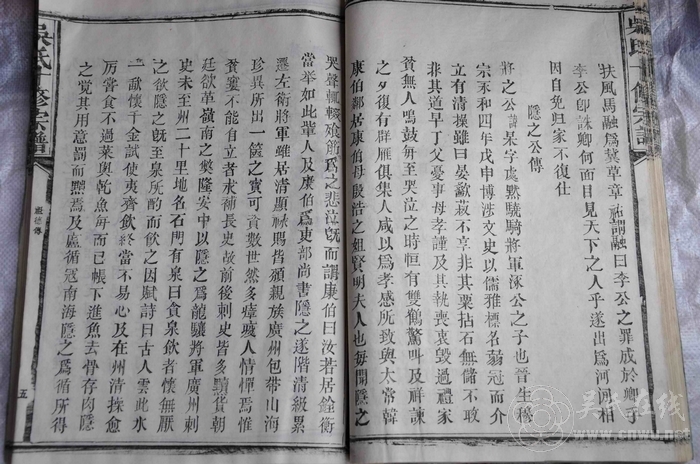 扶風馬融為冀草章祐謂融曰李公之罪成於卿手
李公卽誅卿何面目見天下之人乎遂出為河間相
因自免归家不復仕
隱之公傳
將之公諱杲字處黙驍騎將軍涿公之子也晉生穆
宗永和四年戊申博涉文史以儒雅標名弱冠而介
立有清操雖曰晏歠菽不享非其粟拈石無儲不取
非其道早丁父憂事母孝謹及其執喪哀毀過禮家
貧無人鳴鼓每至哭泣之時恒有雙鶴驚叫及祥諫
之夕復有群雁俱集人咸以為孝感所致與太常韓
康伯鄰居康伯母殷浩之姐賢明夫人也每聞隱之
哭聲輒輟飧筯為之悲泣旣而謂康伯曰汝若居銓衡
當举如此輩人及康伯為吏部尚書隱之遂階清級累
遷左衛將軍雖居清顯祿賜皆頒親族廣州包帶山海
珍異所出一篋之寳可資數世然多瘴癘人情憚焉惟
貧窶不能自立者求補長史故前後刺史皆多黷貨朝
廷欲革嶺南之獘隆安中以隱之為龍驤將軍廣州刺
史未至州二十里地名石門有泉曰貪泉飲者懷無厭
之欲隱之旣至泉所酌而飲之因賦詩曰古人雲此水
一歃懷千金試使夷齊飲終當不易心及在州清操愈
厉嘗食不過莱與乾魚而已帳下進魚去骨存肉隱
之覺其用意罰而黜焉及盧循寇南海隱之為循所得
吳氏十修宗譜
五
吴氏在线
www.cnwu.net